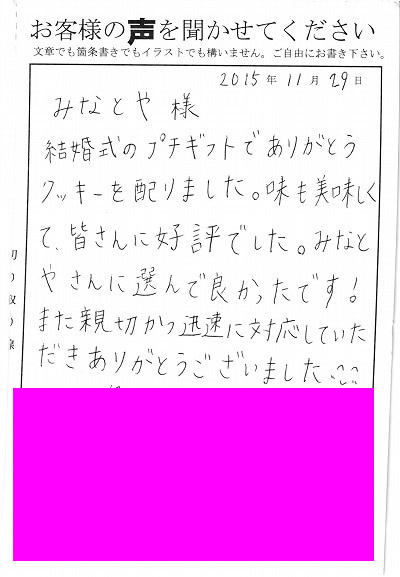 お客様の声を聞かせてください
文章でも箇条書きでもイラストでも構いません。ご自由にお書き下さい。
2015年11月29日
みなとや 様
結婚式のプチギフトでありがとう
クッキーを配りました。味も美味しく
て、皆さんに好評でした。みなと
やさんに選んで良かったです!
また親切かつ迅速に対応していた
だきありがとうございました